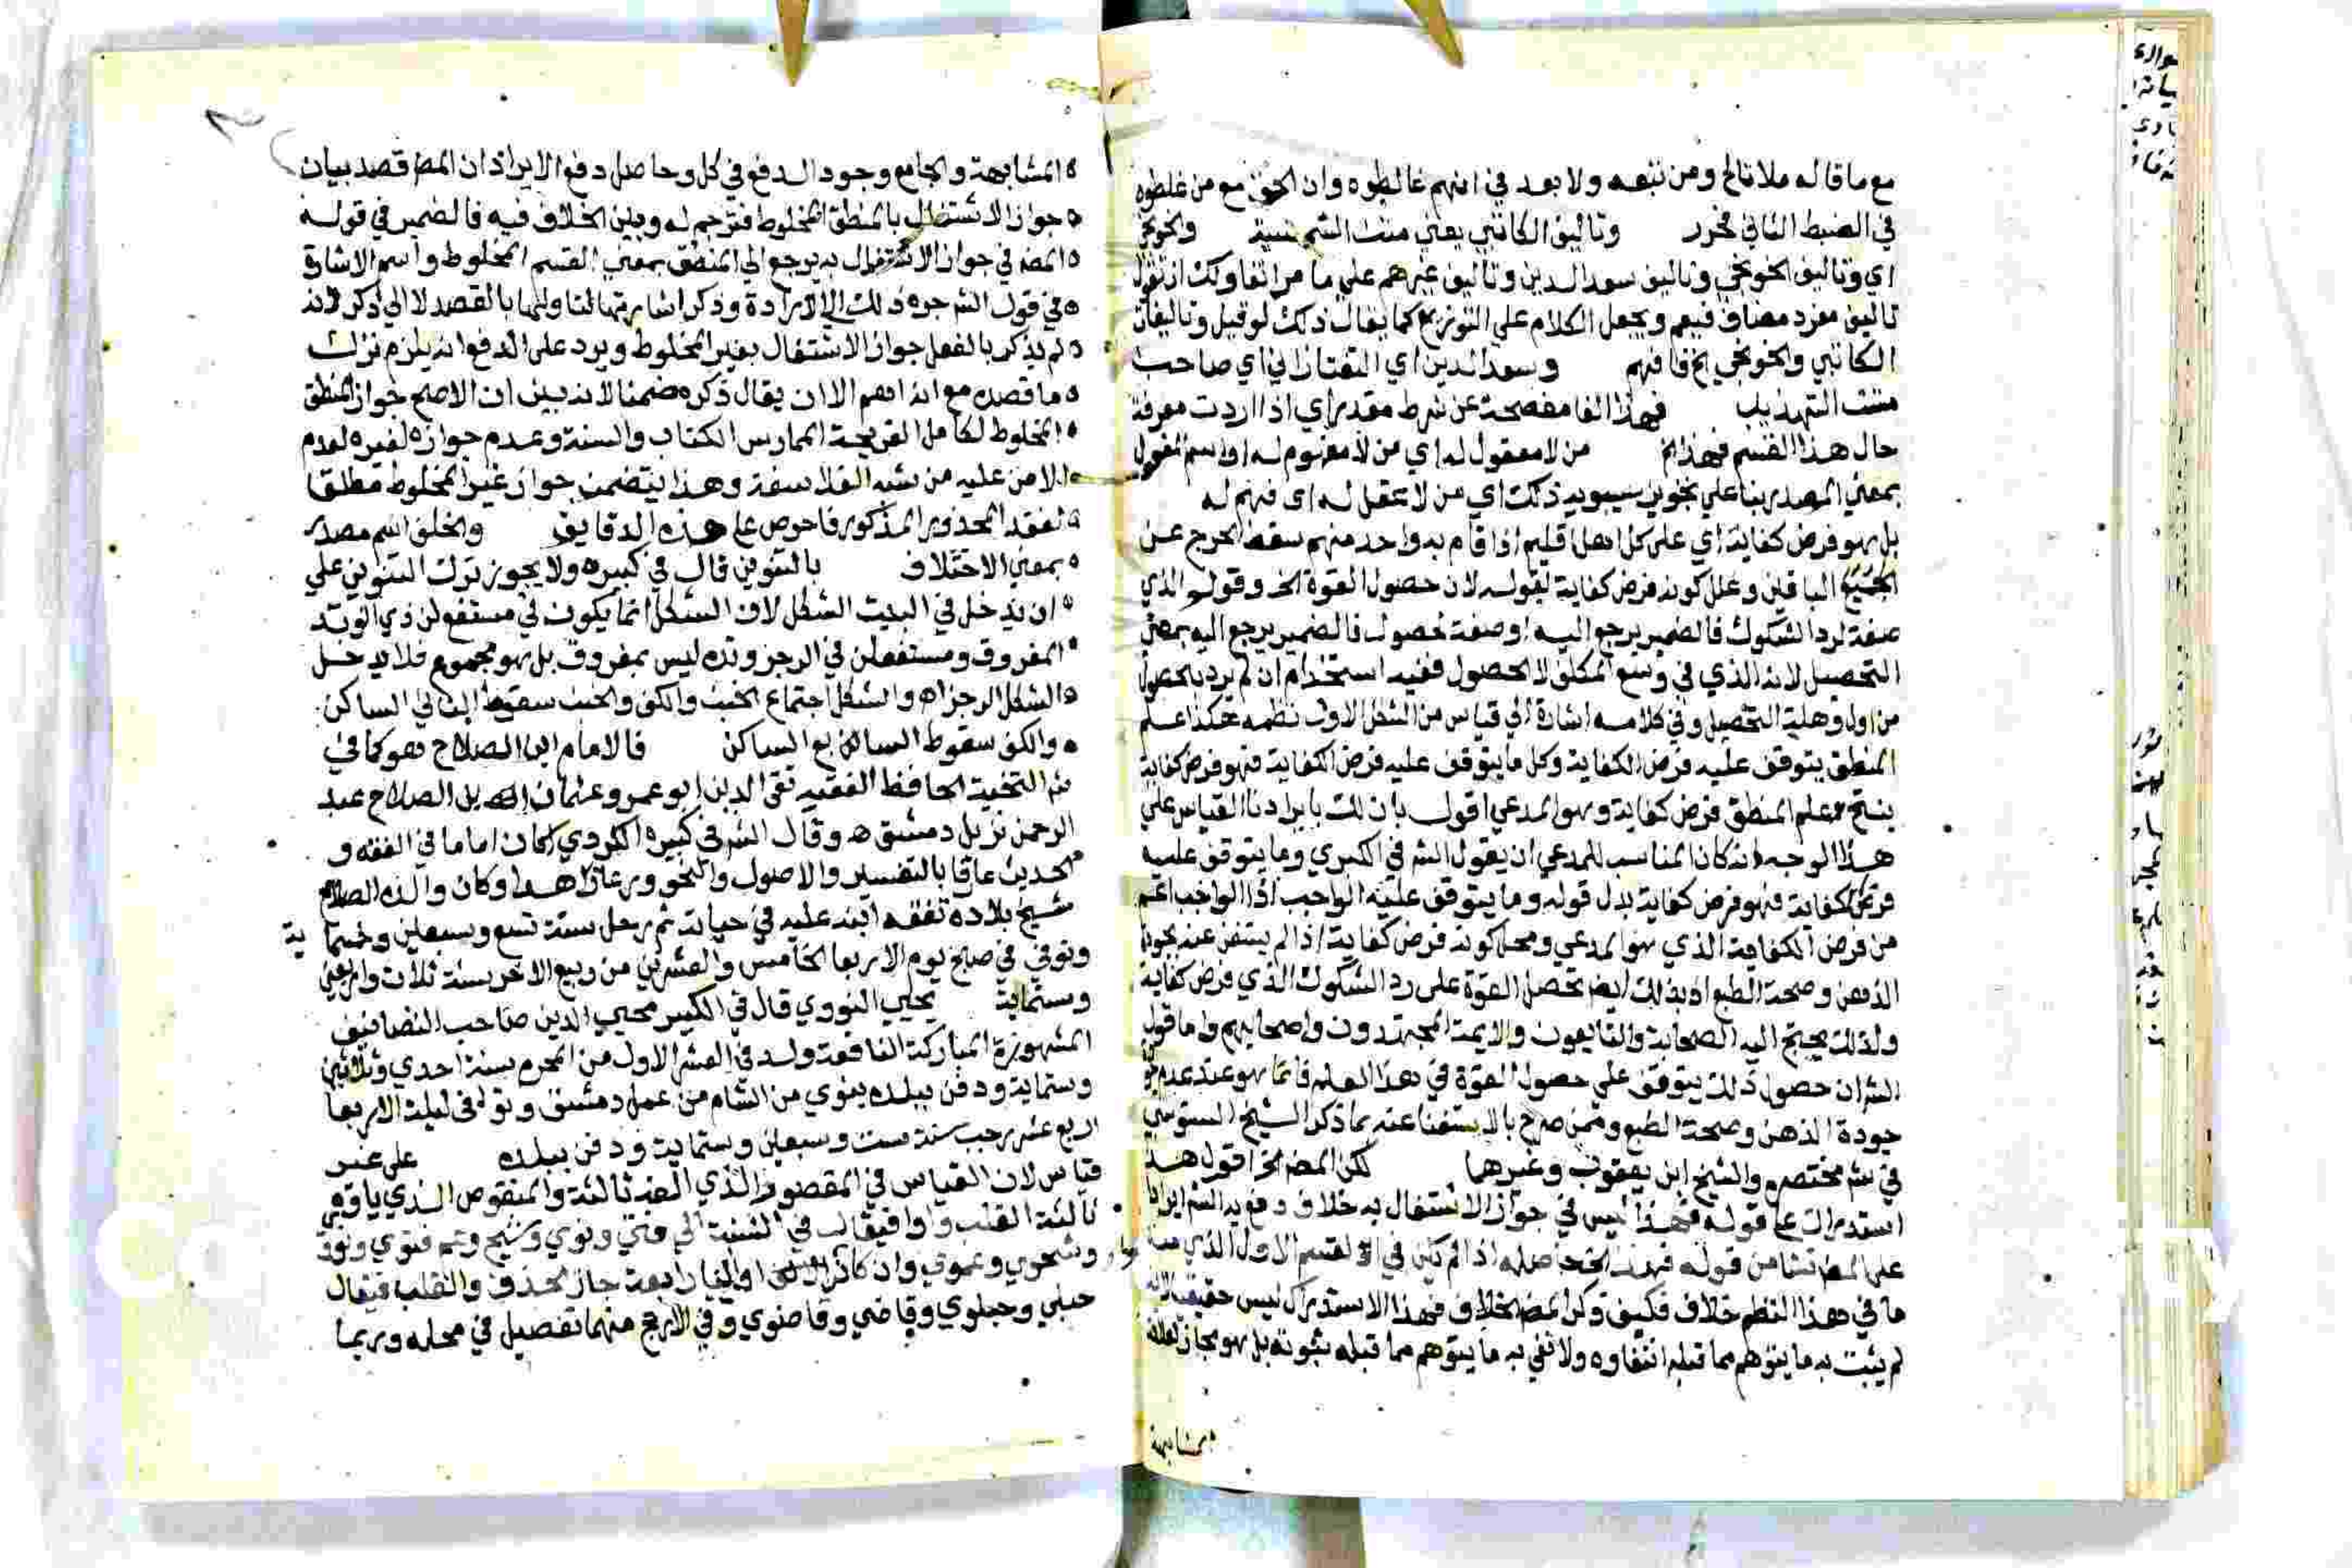 مع ما قاله ملا تالح ومن تبعه ولا بعد في انهم غالطوه وان الحق مع من غلطوه
في الضبط الثاني فحرر وتاليف الكاتبي يعني متنت الشمسية والخونجي
اي وتاليف الخونجي وتاليف سعد الدين وتاليف غيرهم علي ما مر انفا ولك ان تقول
تاليف مفرد مضاف فيعم ويجعل الكلام علي التوزيع كما يقال ذلك لو قيل وتاليفات
الكاتبي والخونجي الخ فافهم وسعد الدين اي التفتازاني اي صاحب
متنت التهذيب فهذا الفا مفصحة عن شرط مقدر اي اذا اردت معرفة
حال هذا القسم فهذا الخ من لا معقول له اي من لا مفهوم له او اسم المفعول
بمعني المصدر بنا علي تجويز سيبويه ذلك اي من لا عقل له اي فهم له
بل هو فرض كفاية اي علي كل اهل اقليم اذا قام به واحد منهم سقط الحرج عن
الجميع الباقين وعلل كونه فرض كفاية بقوله لان حصول القوة الخ وقوله الذي
صفة لرد الشكوك فالضمير يرجع اليه او صفة لحصول فالضمير يرجع اليه بمعني
التحصيل لانه الذي في وسع المكلف لا الحصول ففيه استخدام ان لم يرد بالحصول
من اول وهلة التحصيل وفي كلامه اشارة الي قياس من الشكل الاول نظمه هكذا علم
المنطق يتوقف عليه فرض الكفاية وكل ما يتوقف عليه فرض الكفاية فهو فرض كفاية
ينتج علم المنطق فرض كفاية وهو المدعي اقول بان لك بايرادنا القياس علي
هذا الوجه انه كان المناسب للمدعي ان يقول الشم في الكبري وما يتوقف عليه
فرض الكفاية فهو فرض كفاية بدل قوله وما يتوقف عليه الواجب اذ الواجب اعم
من فرض الكفاية الذي هو المدعي ومحل كونه فرض كفاية اذا لم يستغن عنه بجودة
الذهن وصحة الطبع اذ بذلك ايضا تحصل القوة علي رد الشكوك الذي فرض كفاية
ولذلك يحتج اليه الصحابة والتابعون والايمة المجتهدون واصحابهم واما قول
الشم ان حصول ذلك يتوقف علي حصول القوة في هذا العلم فانما هو عند عدم
جودة الذهن وصحة الطبع وممن صرح بالاستغنا عنه بما ذكر الشيخ السنوسي
في شم مختصره والشيخ ابن يعقوب وغيرهما لكن المصنف الخ اقول هذا
استدراك علي قوله فهذا ليس في جواز الاشتغال به خلاف دفع به الشم ايرادا
علي المصنف نشا من قوله فهذا الخ حاصله اذا لم يكن في القسم الاول الذي منه
ما في هذا النظم خلاف فكيف ذكر المصنف الخلاف فهذا الاستدراك ليس حقيقيا لانه
لم يثبت به ما يتوهم مما قبله انتفاوه ولا نفي به ما يتوهم مما قبله ثبوته بل هو مجاز لعلاقة
المشابهة
المشابهة والجامع وجود الدفع في كل وحاصل دفع الايراد ان المصنف قصد بيان
جواز الاشتغال بالمنطق المخلوط فترجم له وبين الخلاف فيه فالضمير في قوله
المصنف في جواز الاشتغال به يرجع الي المنطق بمعني القسم المخلوط واسم الاشارة
في قول الشم جره ذلك الي الارادة وذكر اشارتها لتاولها بالقصد لا الي ذكر لانه
لم يذكر بالفعل جواز الاشتغال بغير المخلوط ويرد علي الدفع انه يلزم ترك
ما قصده مع انه اهم الا ان يقال ذكره ضمنا لانه بين ان الاصح جواز المنطق
المخلوط لكامل القريحة الممارس الكتاب والسنة وعدم جوازه لغيره لعدم
الامن عليه من شبه الفلاسفة وهذا يتضمن جواز غير المخلوط مطلقا
لفقد المحذور المذكور فاحرص علي هذه الدقايق والخلف اسم مصدر
بمعني الاختلاف بالتنوين قال في كبيره ولا يجوز ترك التنوين علي
ان يدخل في البيت الشكل لان الشكل انما يكون في مستفع لن ذي الوتد
المفروق ومستفعلن في الرجز وتده ليس بمفروق بل هو مجموع فلا يدخل
الشكل الرجز اه والشكل اجتماع الخبن والكف والخبن سقوط الثاني الساكن
والكف سقوط السابع الساكن فالامام ابن الصلاح هو كما في
شم النخبة الحافظ الفقيه تقي الدين ابو عمرو عثمان بن الصلاح عبد
الرحمن نزيل دمشق اه وقال الشم في كبيره الكردي كان اماما في الفقه و
الحديث عارفا بالتفسير والاصول والنحو ورعا زاهدا وكان والده الصلاح
شيخ بلاده تفقه ابنه عليه في حياته ثم رحل سنة تسع وسبعين وخمسماية
وتوفي في صبح يوم الاربعا الخامس والعشرين من ربيع الاخر سنة ثلاث واربعين
وستماية يحيي النووي قال في الكبير محيي الدين صاحب التصانيف
المشهورة المباركة النافعة ولد في العشر الاول من المحرم سنة احدي وثلاثين
وستماية ودفن ببلده بنوي من الشام من عمل دمشق وتوفي ليلة الاربعا
اربع عشر رجب سنة ست وسبعين وستماية ودفن ببلده علي غير
قياس لان القياس في المقصور الذي الفه ثالثة والمنقوص الذي ياوه
ثالثة القلب واوا فيقال في النسبة الي فتي ونوي وشج وعم فتوي ونووي
وشجوي وعموي وان كانت الالف او اليا رابعة جاز الحذف والقلب فيقال
حبلي وحبلوي وقاضي وقاضوي وفي الارجح منهما تفصيل في محله وربما